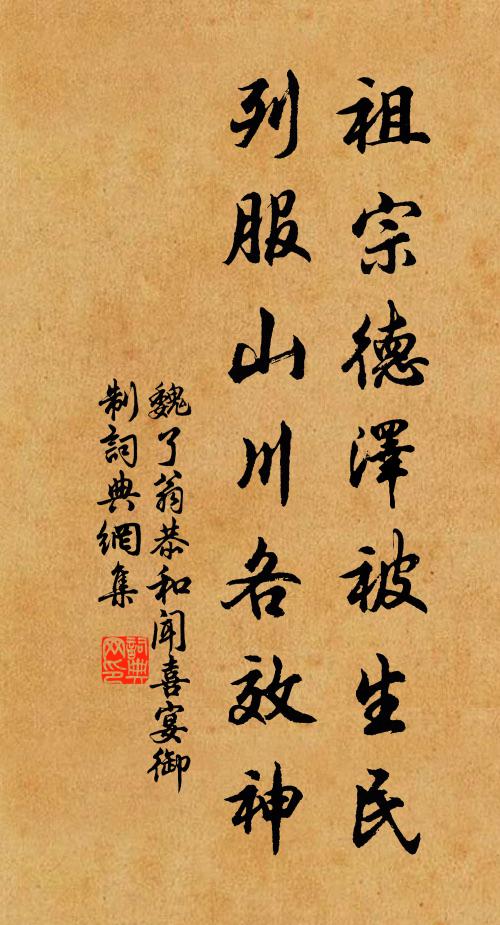 祖宗德澤被生民
列服山川各效神
魏了翁恭和聞喜宴御
制詞典網集
詞典
网印